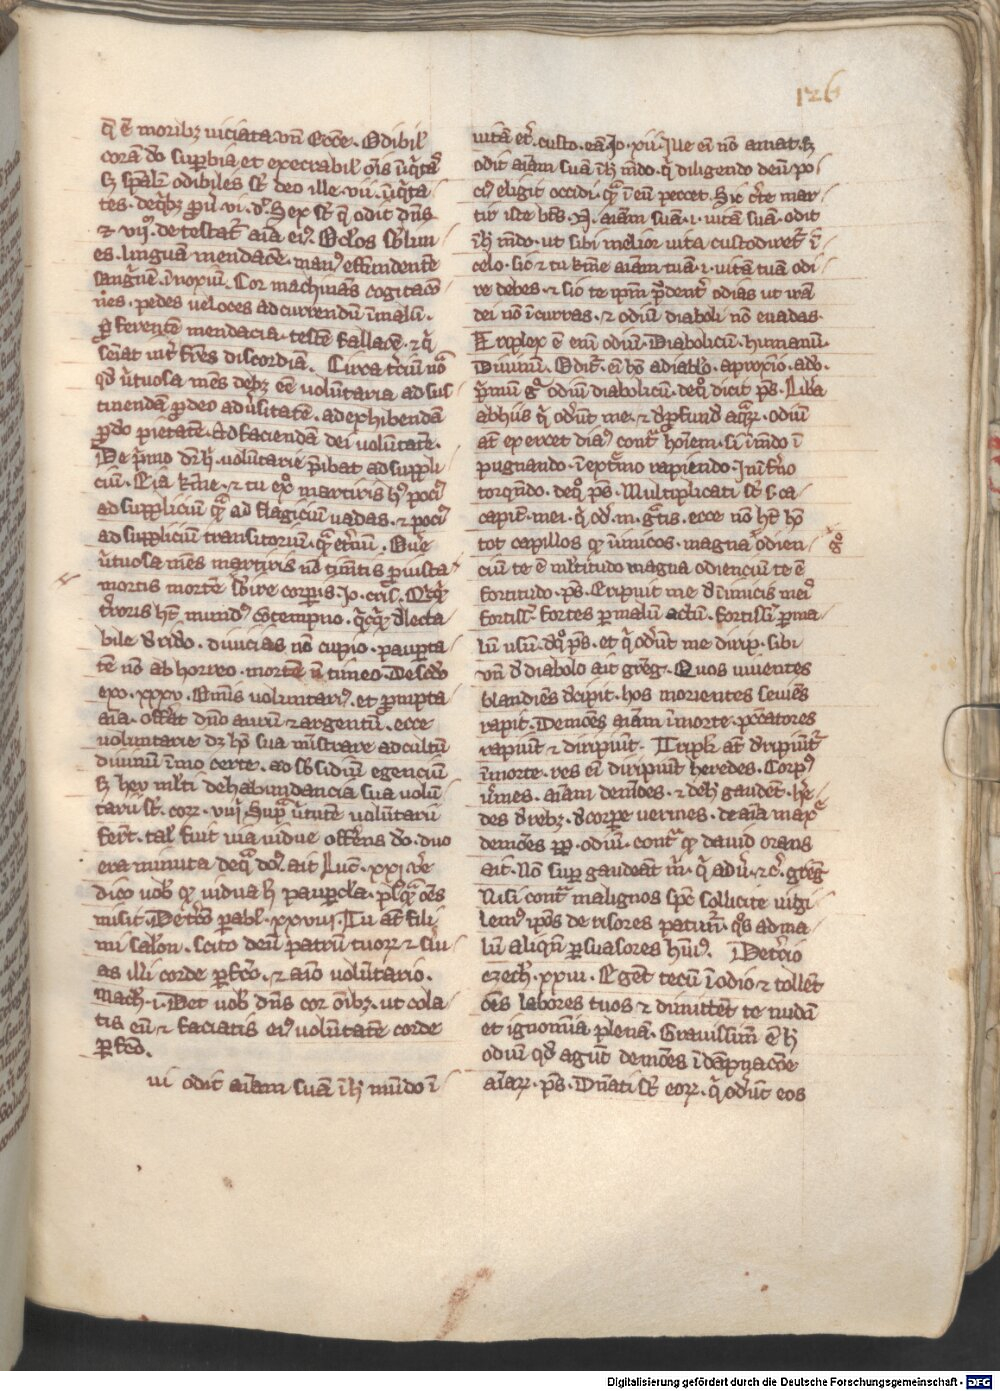 126
q̄ ē moribꝫ uiciata. vn̄ Ecce. Odibil̕
corā do suꝑbia et execrabil̕ oīs iīqͥtaˢ
sꝫ sp̄alr̄ odibiles st̄ deo ille. vii. iīqͥta
tes. de qͥbꝫ ꝓuͥ. vi. dʳ. Sex st̄ q̄ odit dn̄s
⁊ vijᵐ. detestat̄ aīa eiꝰ. Oc̄los sb̄lim
es. linguam mendacē. manꝰ effundente
sanguinē īnoxiū. Cor machinās cogitacō
nes. pedes ueloces ad currendū ī malū.
ꝓferentē mendacia. testē fallacē. ⁊ qͥ
seīat int̄ fr̄es discordiā. Circa tʳciū nōᵃ
qd̄ uͥtuosa mēs debꝫ eē volūtaria ad sus
tinendā ꝓ deo aduͥsitatē. ad exhibendā
ꝓxīo pietatē. ⁊ ad faciendā dei volūtatē.
De pͥmo dr̄ hͥ. voluntarie p̄ibat ad suppli
cīu. Eia kͬme. ⁊ tu exº martiris hꝰ pociꝰ
ad suppliciū qᵃ̄ ad flagiciū uadas. ⁊ pociꝰ
ad suppliciū transitoriū. qᵃ̄ et̄nū.
uͥtuosa mēs martiris nō timētis ꝓ iusta
mortis mortē sb̄ire corꝑis. Io. crīs.
tʳroris hꝫ mundꝰ ↄtempno. qͥcqͥd delecta
bile dͥrideo. diuicias nō cupio. pauꝑta
tē nō abhorreo. mortē nō timeo. De scd̄o
exo. xxxv. Omīs voluntariꝰ. et ꝓmpta
aīa. off̄at dn̄o aurū ⁊ argentū. ecce
voluntarie dꝫ hō sua mīstrare ad cultū
diuinū īmo certe. ad sb̄sidiū egenciū
sꝫ heu ml̄ti de habundancia sua volū
tarii st̄. corͬ. viij. Supᵃ uͥtutē volūtarii
fuer̄t. tal̕ fuit una uidue offerens do. duo
era minuta de qᵃ dō. ait Luc̄. xxi. vͤre
dico uob̕ ꝙ uidua hͨ pauꝑcl̄a. pl̄ꝰ qᵃ̄ oēs
misit. De tʳcō pabl̕. xxviiij. Tu at̄ fili
mi salōn. scito deū patrū tuoꝝ ⁊ sͥui
as illi corde ꝑfc̄o. ⁊ aīo volūtario.
Mach̕. i. Det uob̕ dn̄s cor oībꝫ. ut cola
tis eū ⁊ faciatis eiꝰ volūtatē corde
ꝑfc̄o.
ui odit aīam suā ī hͦ mūdo ī
uitā et̄. custo. eā Jo. xii. Ille ei nō amat. sꝫ
odit aīam suā ī hͦ mūdo. qͥ diligendo deū. po
ciꝰ eligit occidi. qᵃ̄ ī eū peccet. Sic cͥte mar
tir iste bt̄s. N. aīam suā. i. uitā suā. odit
ī hͦ mūdo. ut sibi melior uita custodiretʳ ī
celo. sic ⁊ tu kͬme aīam tuā. i. uitā tuā odi
re debes. ⁊ sic te ip̄m pͥdent̄ odias ut irā
dei nō īcurras. ⁊ odiū diaboli nō euadas.
Triplex ē enī odiū. Diabolicū. humanū.
Diuinū. Oditʳ eī hō a diab̕lo. a ꝓximo. a dō.
pͥmū gͦ odiū diabolicū. de qͦ dicit p̄s. Lib̄a
ab hiis qͥ oderūt me. ⁊ de ꝓfund̕ aqͣꝝ. odiū
at̄ exercet diaꝰ contᵃ hoīem. si ī mūdo ī
pugnando. ī extͤmo rapiendo. In īfͤno
torqͤndo. de qͦ p̄s. Multiplicati st̄ s. ca
capit̕. mei. qͥ od̕. m. gᵃtis. ecce nō hꝫ hō
tot capillos ꝙ inimicos. magna odien
cīu te ē ml̄titudo magna odienciū te ē
fortitudo. p̄s. Eripuit me de inimicis meiˢ
fortisˢ. fortes ꝑ malū actū. fortissͥ ꝑ ma
lū usū. dqͦ p̄s. et qͥ oderūt me dirip. sibi
vn̄ de diabolo ait greg̕. Quos uiuentes
blandiēs decipit. hos morientes seuiēs
rapit. Demōes aīam ī morte. peccatores
rapiunt ⁊ diripiūt. Triplr̄ at̄ diripiūtʳ
ī morte. res eī diripiunt heredes. Corpꝰ
uͬmes. aīam demōes. ⁊ de hͨ gaudēt. he
des de rebꝫ. de corpe uermes. de aīa maxᵉ
demōes ꝓpͭ. odiū. contᵃ ꝙ dauid orans
ait. Nō suꝑgaudeāt mͥ. qͥ aduͥ. ⁊ cͭ. greg̕
Nisi contᵃ malignos spc̄ sollicite uigi
lemꝰ ip̄os derisores patimʳ. qͦs ad ma
lū aliqn̄ ꝑsuasores hūiꝰ. De tʳcio
ezech̕. xxiii. Agēt tecū ī odio ⁊ tollēt
oēs labores tuos ⁊ dimittēt te nudā
et ignomīa plenā. Grauissimū ē hͨ
odiū qd̄ agūt demōes ī dāpnacōe
aīaꝝ. p̄s. Dn̄ati st̄ eoꝝ. qͥ oderūt eos
Digitalisierung gefördert durch die Deutsche Forschungsgemeinschaft - DFG